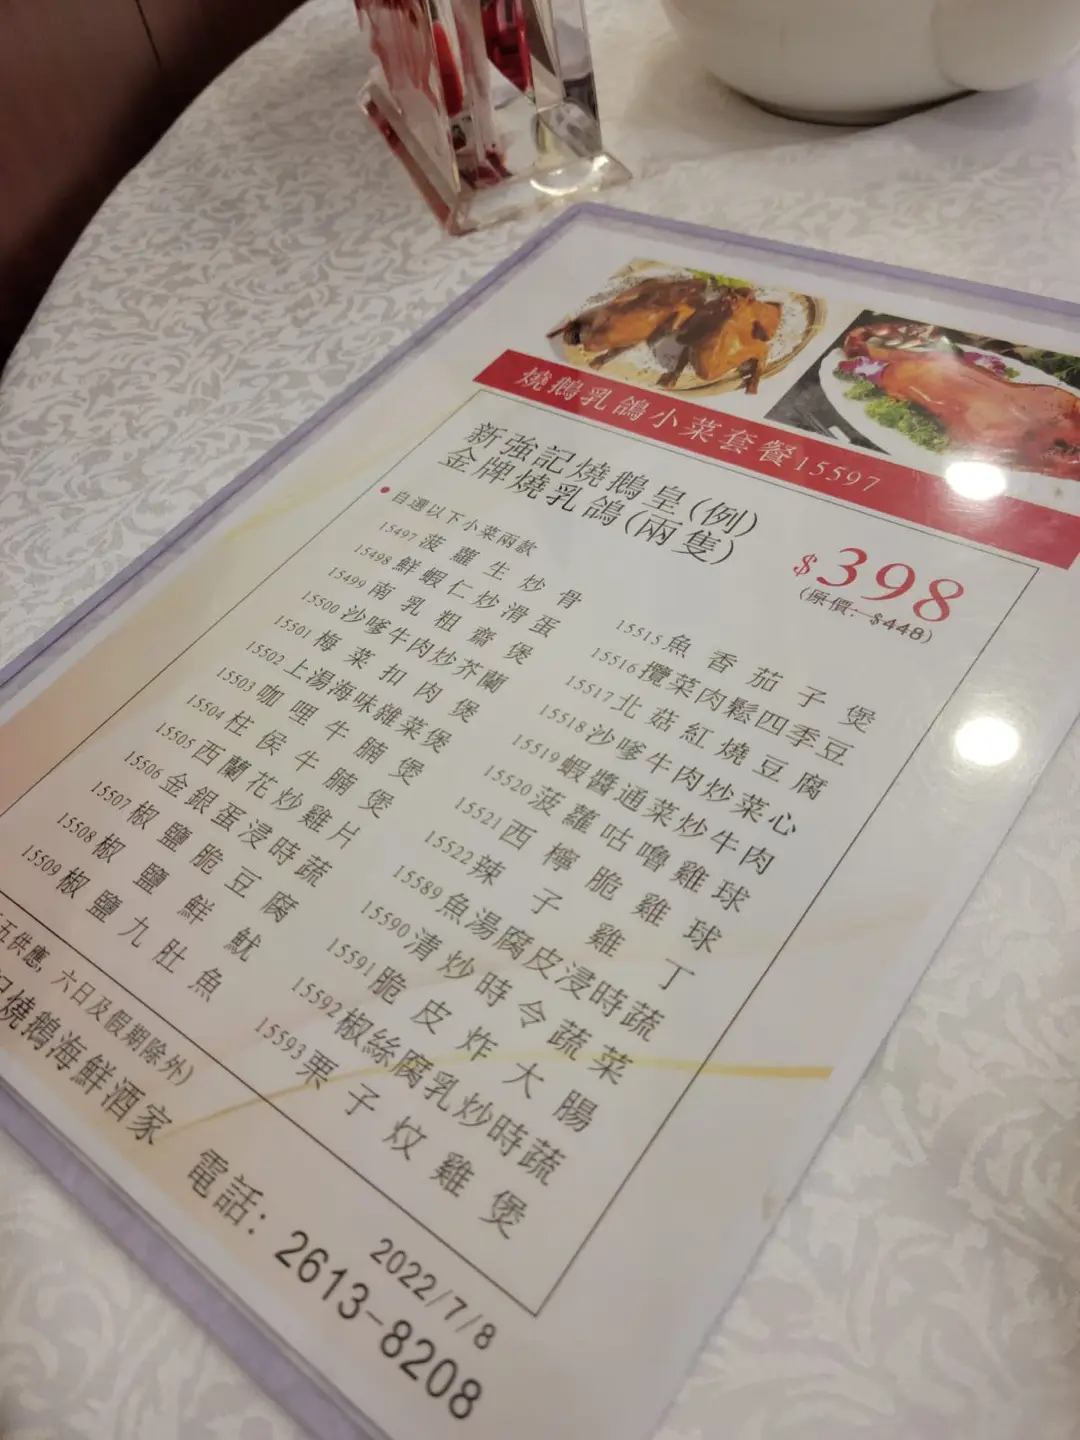 燒鵝乳鴿小菜套餐15597
新強記燒鵝皇(例)
金牌燒乳鴿(兩隻)
$398
(原價:$448)
自選以下小菜兩款
15497 菠蘿生炒骨
15498 鮮蝦仁炒滑蛋
15499 南乳粗齋煲
15500 沙嗲牛肉炒芥蘭
15501 梅菜扣肉煲
15502 上湯海味雜菜煲
15503 咖哩牛腩煲
15504 柱侯牛腩煲
15505 西蘭花炒雞片
15506 金銀蛋浸時蔬
15507 椒鹽脆豆腐
15508 椒鹽鮮魷
15509 椒鹽九肚魚
15515 魚香茄子煲
15516 攬菜肉鬆四季豆
15517 北菇紅燒豆腐
15518 沙嗲牛肉炒菜心
15519 蝦醬通菜炒牛肉
15520 菠蘿咕嚕雞球
15521 西檸脆雞球
15522 辣子雞丁
15589 魚湯腐皮浸時蔬
15590 清炒時令蔬菜
15591 脆皮炸大腸
15592 椒絲腐乳炒時蔬
15593 栗子炆雞煲
五供應, 六日及假期除外)
記燒鵝海鮮酒家 電話: 2613-8208
2022/7/8